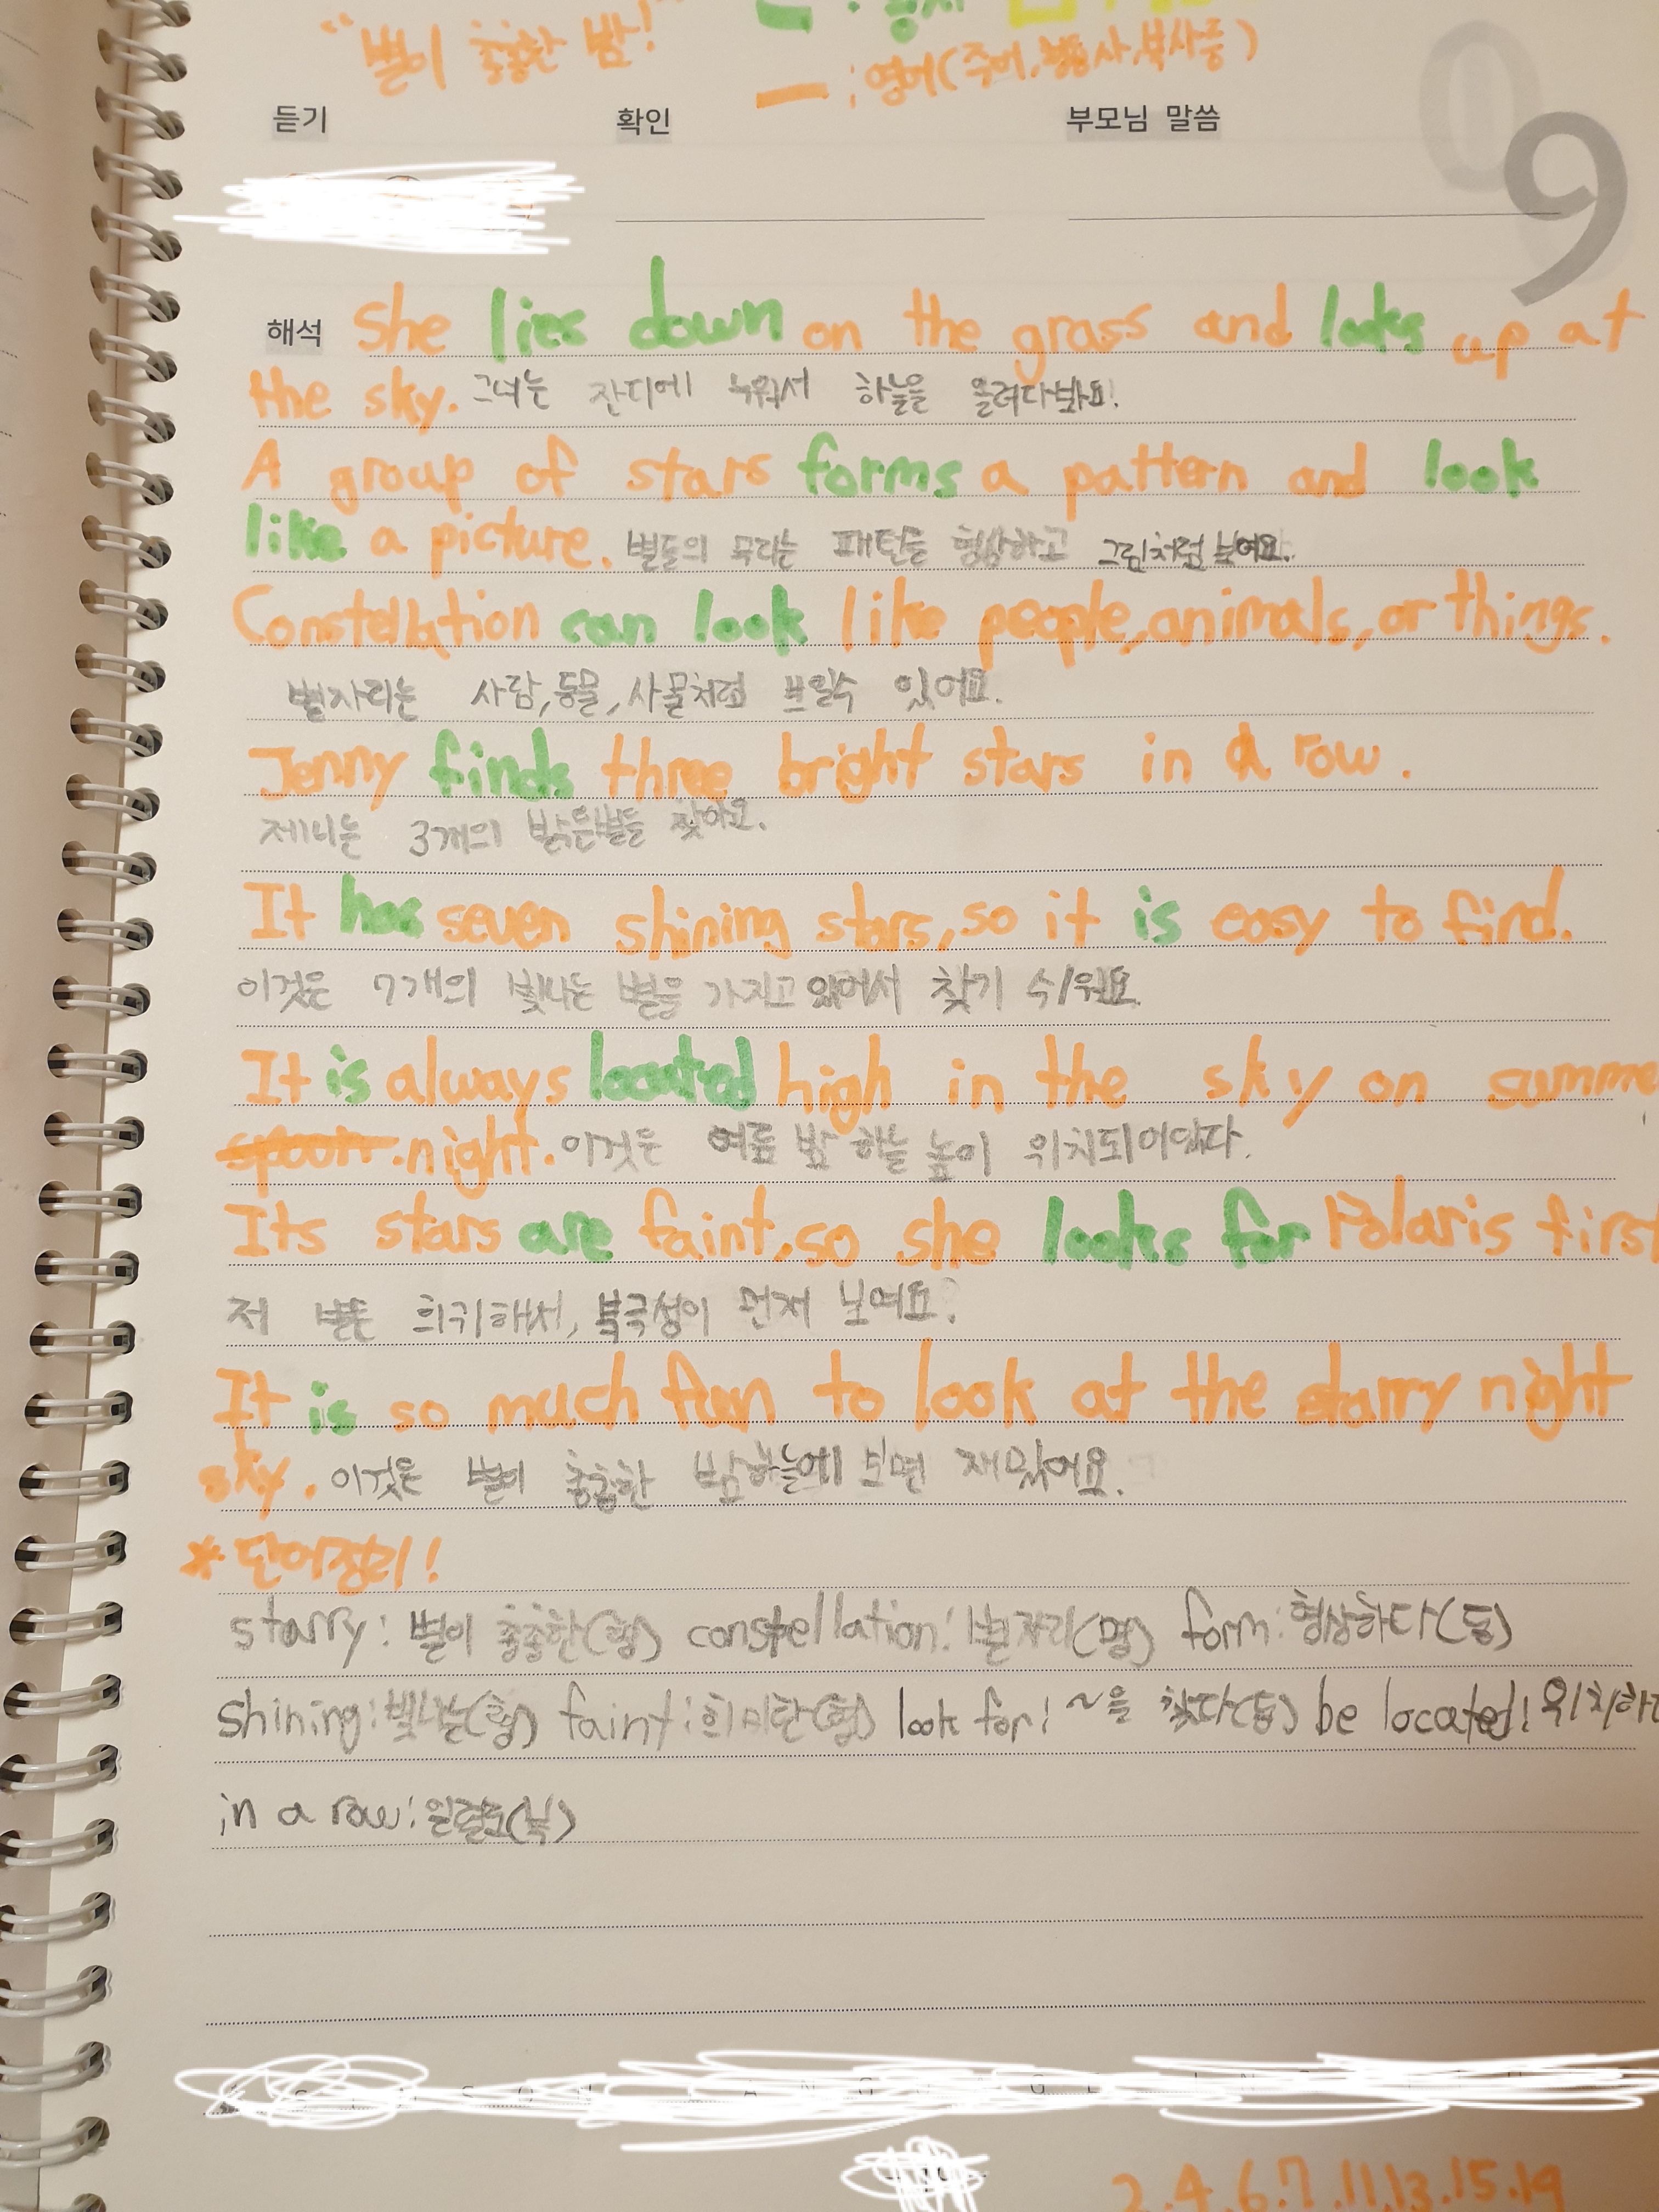 "별이 총총한 밤!"
: 동사
: 영어(주어, 형용사, 부사등)
09
듣기 확인 부모님 말씀
해석 She lies down on the grass and looks up at
the sky. 그녀는 잔디에 누워서 하늘을 올려다봐요!
A group of stars forms a pattern and look
like a picture. 별들의 무리는 패턴을 형상하고 그림처럼 보여요.
Constellation can look like people, animals, or things.
별자리는 사람, 동물, 사물처럼 보일수 있어요.
Jenny finds three bright stars in a row.
제니는 3개의 밝은별을 찾아요.
It has seven shining stars, so it is easy to find.
이것은 7개의 빛나는 별을 가지고 있어서 찾기 쉬워요.
It is always located high in the sky on summe
night. 이것은 여름 밤 하늘 높이 위치되어있다.
Its stars are faint, so she looks for Polaris first
저 별은 희귀해서, 북극성이 먼저 보여요.
It is so much fun to look at the starry night
sky. 이것은 별이 총총한 밤하늘에 보면 재밌어요.
* 단어정리!
starry: 별이 총총한(형) constellation: 별자리(명) form: 형상하다(동)
shining: 빛나는(형) faint: 희미한(형) look for: ~을 찾다(동) be located: 위치하다
in a row: 일렬로(부)
2.4.6.7.11.13.15.19